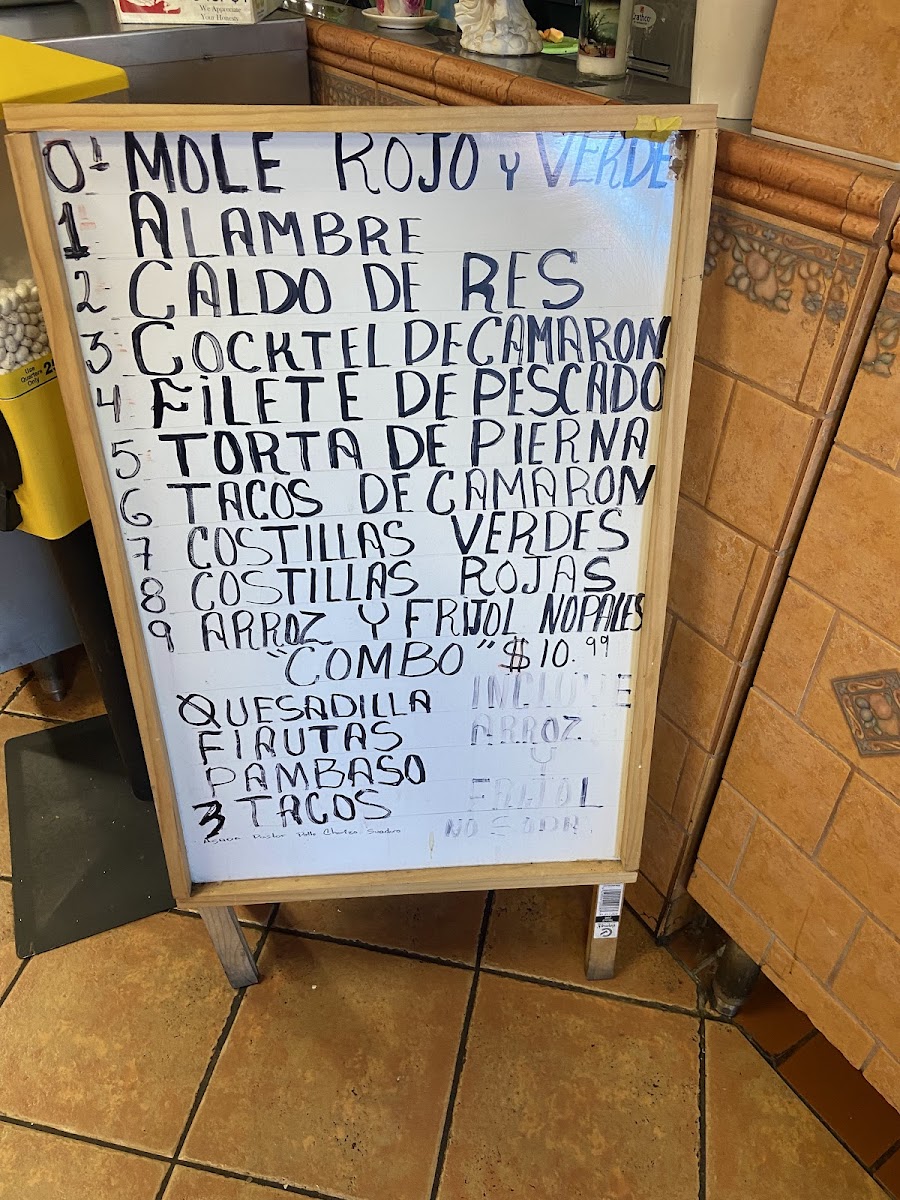 We Appreciate
Your Honesty
Use
Quarters
Only
0! MOLE ROJO Y VERDE
1 ALAMBRE
2 CALDO DE RES
3 COCKTEL DE CAMARON
4 FILETE DE PESCADO
5 TORTA DE PIERNA
6 TACOS DE CAMARON
7 COSTILLAS VERDES
8 COSTILLAS ROJAS
9 ARROZ Y FRIJOL NOPALES
"COMBO" $10.99
QUESADILLA INCLUYE
FLAUTAS ARROZ
Y
PAMBASO
3 TACOS FRIJOL
Pastor Pollo Chorizo Suadero
NO SODA